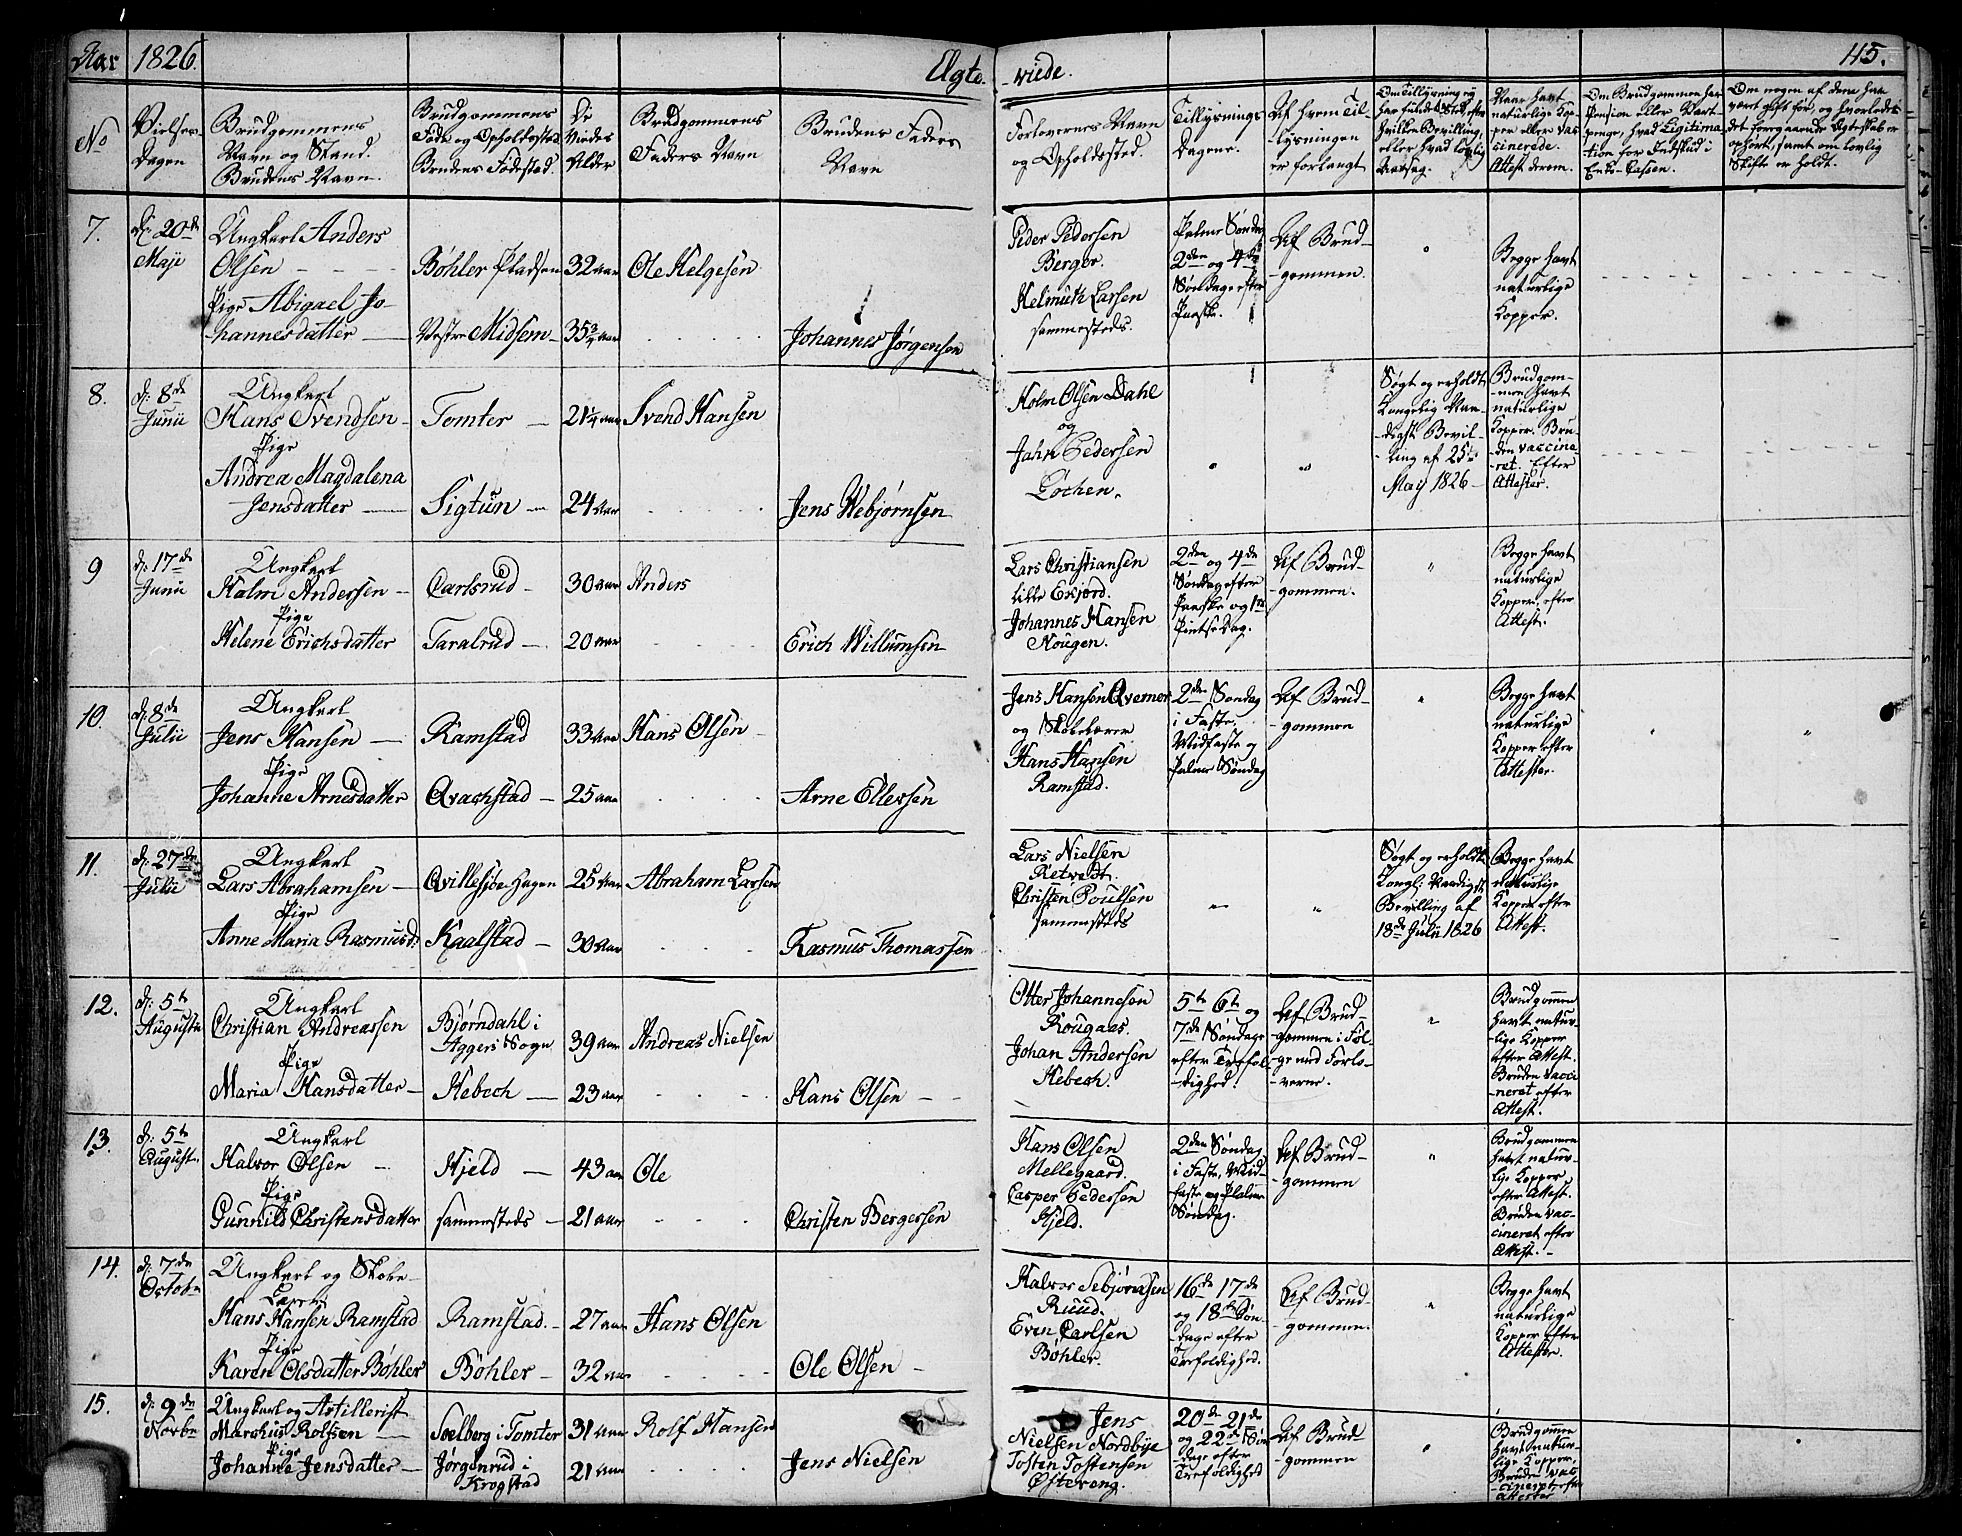 Aar 1826. Ægte- -viede. 45.
No
Vielses-
Dagen
Brudgommens
Navn og Stand.
Brudens Navn.
Brudgommens
Føde og Opholdssted
Brudens Fødested.
De
Viedes
Alder
Brudgommens
Faders Navn
Brudens Faders
Navn
Forlovernes Navn
og Opholdssted.
Tillysnings
Dagene.
Af hvem Til-
-lysningen
er forlangt
Om Tillysning ej
har fundet Sted, efter
hvilken Bevilling,
eller hvad lovlig
Aarsag.
Naar havt
naturlige Kop-
per eller vac-
cinerede.
Attest derom.
Om Brudgommen har
Pension eller Vart-
penge, hvad Legitima-
tion for Indskud i
Enke-Cassen.
Om nogen af dem har
været gift før, og hvorledes
det foregaaende Ægteskab er
ophørt, samt om lovlig
Skifte er holdt.
7.
d: 20de
Maji
Ungkarl Anders
Olsen
Pige Abigael Jo-
hannesdatter
Bøhler Pladsen
Vestre Midsem
32 aar
35 3/4 aar
Ole Helgesen
Johannes Jørgensen
Peder Pedersen
Berger.
Helmuth Larsen
sammesteds.
Palme Søndag
2den og 4de
Søndag efter
Paaske.
Af Brud-
-gommen.
Begge havt
naturlige
Kopper.
8.
d: 8de
Junii
Ungkarl
Hans Svendsen
Pige
Andrea Magdalena
Jensdatter
Tomter
Sigtun
21 1/4 aar
24 aar
Svend Hansen
Jens Webjørnsen
Holm Olsen Dahl
og
Jahn Pedersen
Lochen.
Søgt og erholdt
Kongelig Naa-
-digst Bevil-
-ling af 25de
May 1826
Brudgom-
-men havt
naturlige
Kopper. Bru-
den vaccine-
ret. Efter
Attester.
9
d: 17de
Junii
Ungkarl
Holm Andersen
Pige
Helene Erichsdatter
Carlsrud
Taralrud
30 aar
20 aar
Anders
Erich Willumsen
Lars Christiansen
Lille Exjord.
Johannes Hansen
Nougen.
2den og 4de
Søndag efter
Paaske og 1ste
Pintse Dag.
Af Brud-
gommen.
Begge havt
naturlige
Kopper, efter
Attest.
10.
d: 8de
Julii
Ungkarl
Jens Hansen
Pige
Johanne Arnesdatter
Ramstad
Qvachstad
33 aar
25 aar
Hans Olsen
Arne Ellersen
Jens Hansen Qverner
og Skolelærer
Hans Hansen
Ramstad.
2den Søndag
i Faste,
Midfaste og
Palme Søndag
Af Brud-
-gommen
Begge havt
naturlige
Kopper efter
Attester.
11.
d: 27de
Julii
Ungkarl
Lars Abrahamsen
Pige
Anne Maria Rasmusd:
Qvillesjøe Hagen
Kaalstad
25 aar
30 aar
Abraham Larsen
Rasmus Thomassen
Lars Nielsen
Retvedt.
Christen Poulsen
sammesteds
Søgt og erholdt
Kongl: Naadigst
Bevilling af
18de Julii 1826
Begge havt
naturlige
Kopper efter
Attest.
12.
d: 5te
Augusti
Ungkarl
Christian Andreassen
Pige
Maria Hansdatter
Bjørndahl i
Aggers Sogn
Hebech
39 aar
23 aar
Andreas Nielsen
Hans Olsen
Otter Johannesen
Rougaas.
Johan Andersen
Hebech.
5te 6te og
7de Søndage
efter Trefol-
-dighed.
Af Brud-
gommen i Føl-
ge med Forlo-
-verne.
Brudgommen
havt natur-
lige Kopper
efter Attest.
Bruden vacci-
-neret efter
Attest.
13.
d: 5te
August.
Ungkarl
Halvor Olsen
Pige
Gunnild Christensdatter
Hjeld
sammesteds
43 aar
21 aar
Ole
Christen Bergersen
Hans Olsen
Mellegaard.
Casper Pedersen
Hjeld.
2den Søndag
i Faste, Mid-
faste og Palme
Søndag.
Af Brud-
gommen
Brudgommen
havt natur-
lige Kopper
efter Attest.
Bruden vac-
cineret efter
Attest.
14.
d: 7de
Octobr
Ungkarl og Skole-
Hans Hansen Ramstad
Pige
Karen Olsdatter Bøhler
Ramstad.
Bøhler
27 aar
32 aar
Hans Olsen
Ole Olsen
Halvor Sebjørnsen
Ruud.
Even Carlsen
Bøhler.
16de 17de
og 18de Søn-
dage efter
Trefoldighed.
Af Brud-
gommen.
Begge havt
naturlige
Kopper efter
Attester.
15.
d: 9de
Novbr
Ungkarl og Artillerist
Marchus Rolfsen
Pige
Johanne Jensdatter
Soelberg i Tomter
Jørgenrud i
Krogstad
31 aar
21 aar
Rolf Hansen
Jens Nielsen
Jens
Nielsen Nordbye
Tosten Tostensen
Østereng.
20de 21de
og 22de Søn-
-dage efter
Trefoldighed
Af Brud-
gommen
Brudgommen
havt natur-
lige Kopper,
Bruden vac-
cineret efter
Attester